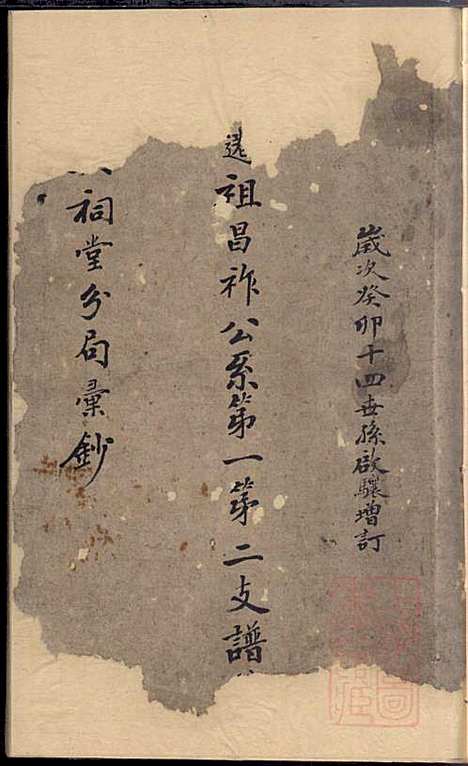 歲次癸卯十四世孫啟驤增訂
遠祖昌祚公系第一第二支譜
祠堂分局彙鈔